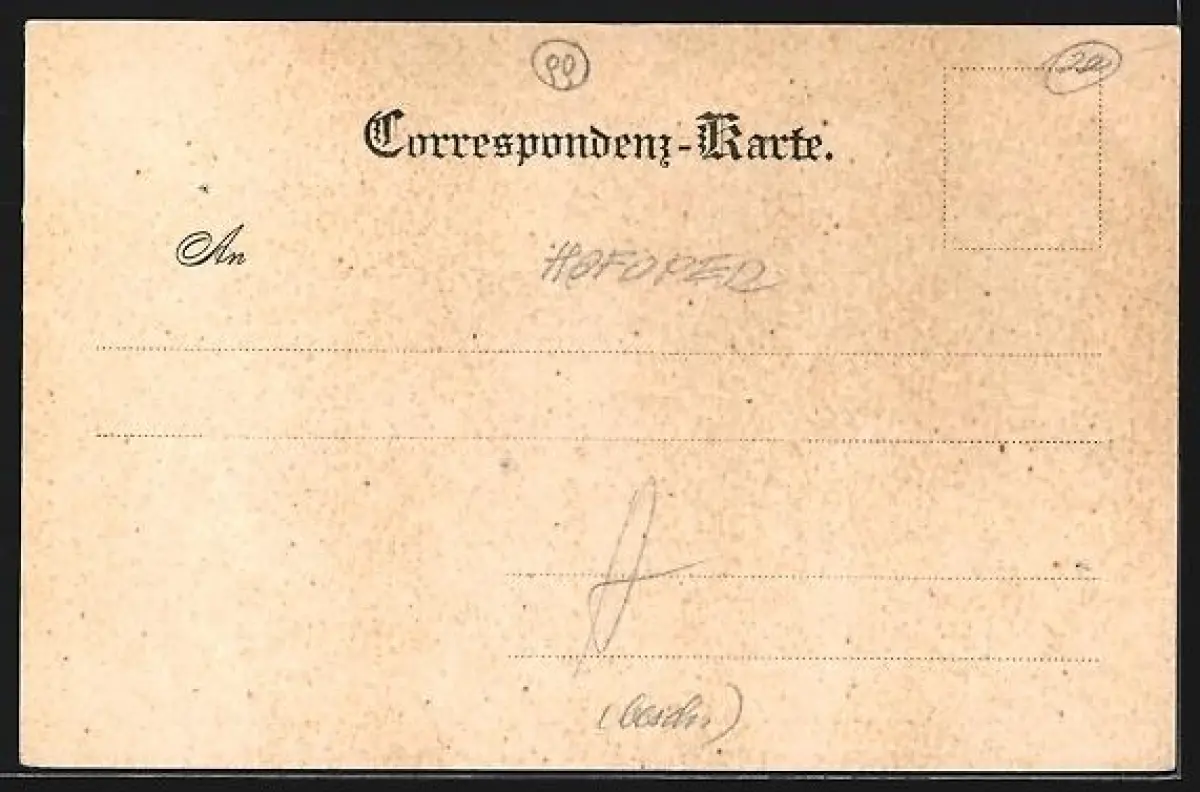 99
Correspondenz-Karte.
An
HOFORER
(besch.)